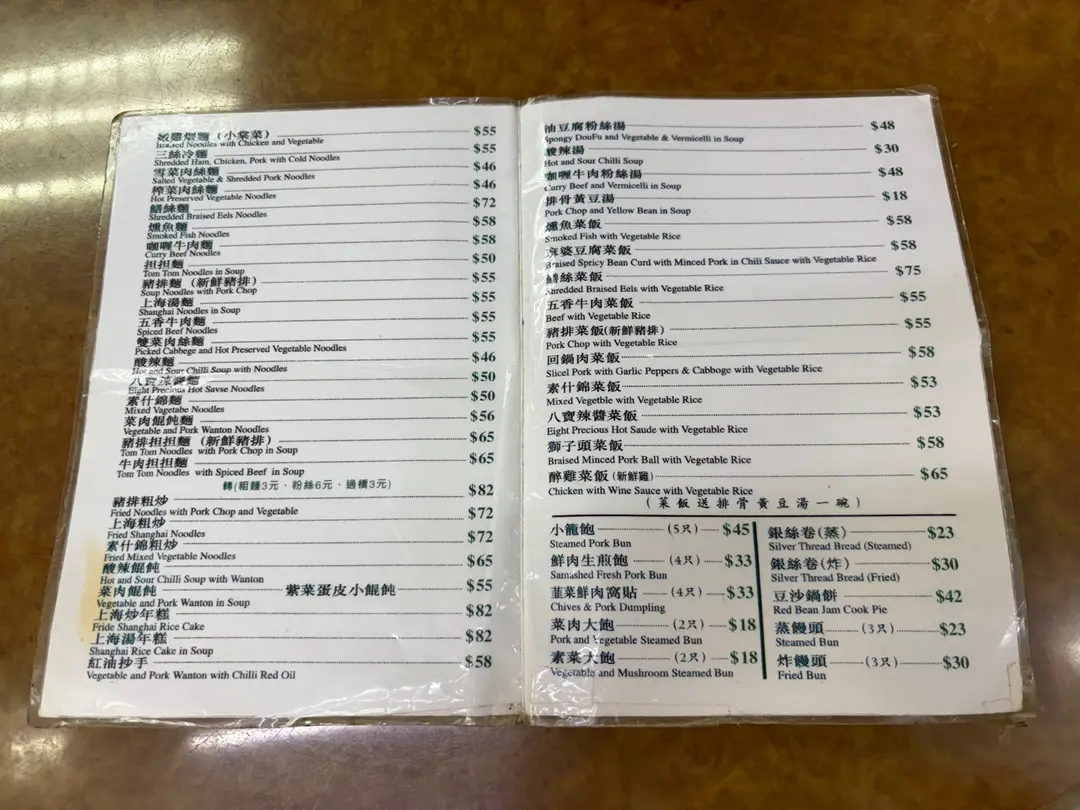 煨麵 (小棠菜) $55
Braised Noodles with Chicken and Vegetable
三絲冷麵 $55
Shredded Ham, Chicken, Pork with Cold Noodles
雪菜肉絲麵 $46
Salted Vegetable & Shredded Pork Noodles
榨菜肉絲麵 $46
Hot Preserved Vegetable Noodles
鱔絲麵 $72
Shredded Braised Eels Noodles
燻魚麵 $58
Smoked Fish Noodles
咖喱牛肉麵 $58
Curry Beef Noodles
担担麵 $50
Tom Tom Noodles in Soup
豬排麵 (新鮮豬排) $55
Soup Noodles with Pork Chop
上海湯麵 $55
Shanghai Noodles in Soup
五香牛肉麵 $55
Spiced Beef Noodles
雙菜肉絲麵 $55
Picked Cabbege and Hot Preserved Vegetable Noodles
酸辣麵 $46
Hot and Sour Chilli Soup with Noodles
八寶辣醬麵 $50
Eight Precious Hot Savse Noodles
素什錦麵 $50
Mixed Vagetabe Noodles
菜肉餛飩麵 $56
Vegetable and Pork Wanton Noodles
豬排担担麵 (新鮮豬排) $65
Tom Tom Noodles with Pork Chop in Soup
牛肉担担麵 $65
Tom Tom Noodles with Spiced Beef in Soup
轉(粗麵3元、粉絲6元、過橋3元)
豬排粗炒 $82
Fried Noodles with Pork Chop and Vegetable
上海粗炒 $72
Fried Shanghai Noodles
素什錦粗炒 $72
Fried Mixed Vegetable Noodles
酸辣餛飩 $65
Hot and Sour Chilli Soup with Wanton
菜肉餛飩 紫菜蛋皮小餛飩 $55
Vegetable and Pork Wanton in Soup
上海炒年糕 $82
Fride Shanghai Rice Cake
上海湯年糕 $82
Shanghai Rice Cake in Soup
紅油抄手 $58
Vegetable and Pork Wanton with Chilli Red Oil
油豆腐粉絲湯 $48
Spongy DouFu and Vegetable & Vermicelli in Soup
酸辣湯 $30
Hot and Sour Chilli Soup
咖喱牛肉粉絲湯 $48
Curry Beef and Vermicelli in Soup
排骨黃豆湯 $18
Pork Chop and Yellow Bean in Soup
燻魚菜飯 $58
Smoked Fish with Vegetable Rice
麻婆豆腐菜飯 $58
Braised Spricy Bean Curd with Minced Pork in Chili Sauce with Vegetable Rice
鱔絲菜飯 $75
Shredded Braised Eels with Vegetable Rice
五香牛肉菜飯 $55
Beef with Vegetable Rice
豬排菜飯(新鮮豬排) $55
Pork Chop with Vegetable Rice
回鍋肉菜飯 $58
Slicel Pork with Garlic Peppers & Cabboge with Vegetable Rice
素什錦菜飯 $53
Mixed Vegetble with Vegetable Rice
八寶辣醬菜飯 $53
Eight Precious Hot Saude with Vegetable Rice
獅子頭菜飯 $58
Braised Minced Pork Ball with Vegetable Rice
醉雞菜飯 (新鮮雞) $65
Chicken with Wine Sauce with Vegetable Rice
(菜飯送排骨黃豆湯一碗)
小籠飽 (5只) $45
Steamed Pork Bun
鮮肉生煎飽 (4只) $33
Samished Fresh Pork Bun
韮菜鮮肉窩貼 (4只) $33
Chives & Pork Dumpling
菜肉大飽 (2只) $18
Pork and Vegetable Steamed Bun
素菜大飽 (2只) $18
Vegetable and Mushroom Steamed Bun
銀絲卷(蒸) $23
Silver Thread Bread (Steamed)
銀絲卷(炸) $30
Silver Thread Bread (Fried)
豆沙鍋餅 $42
Red Bean Jam Cook Pie
蒸饅頭 (3只) $23
Steamed Bun
炸饅頭 (3只) $30
Fried Bun